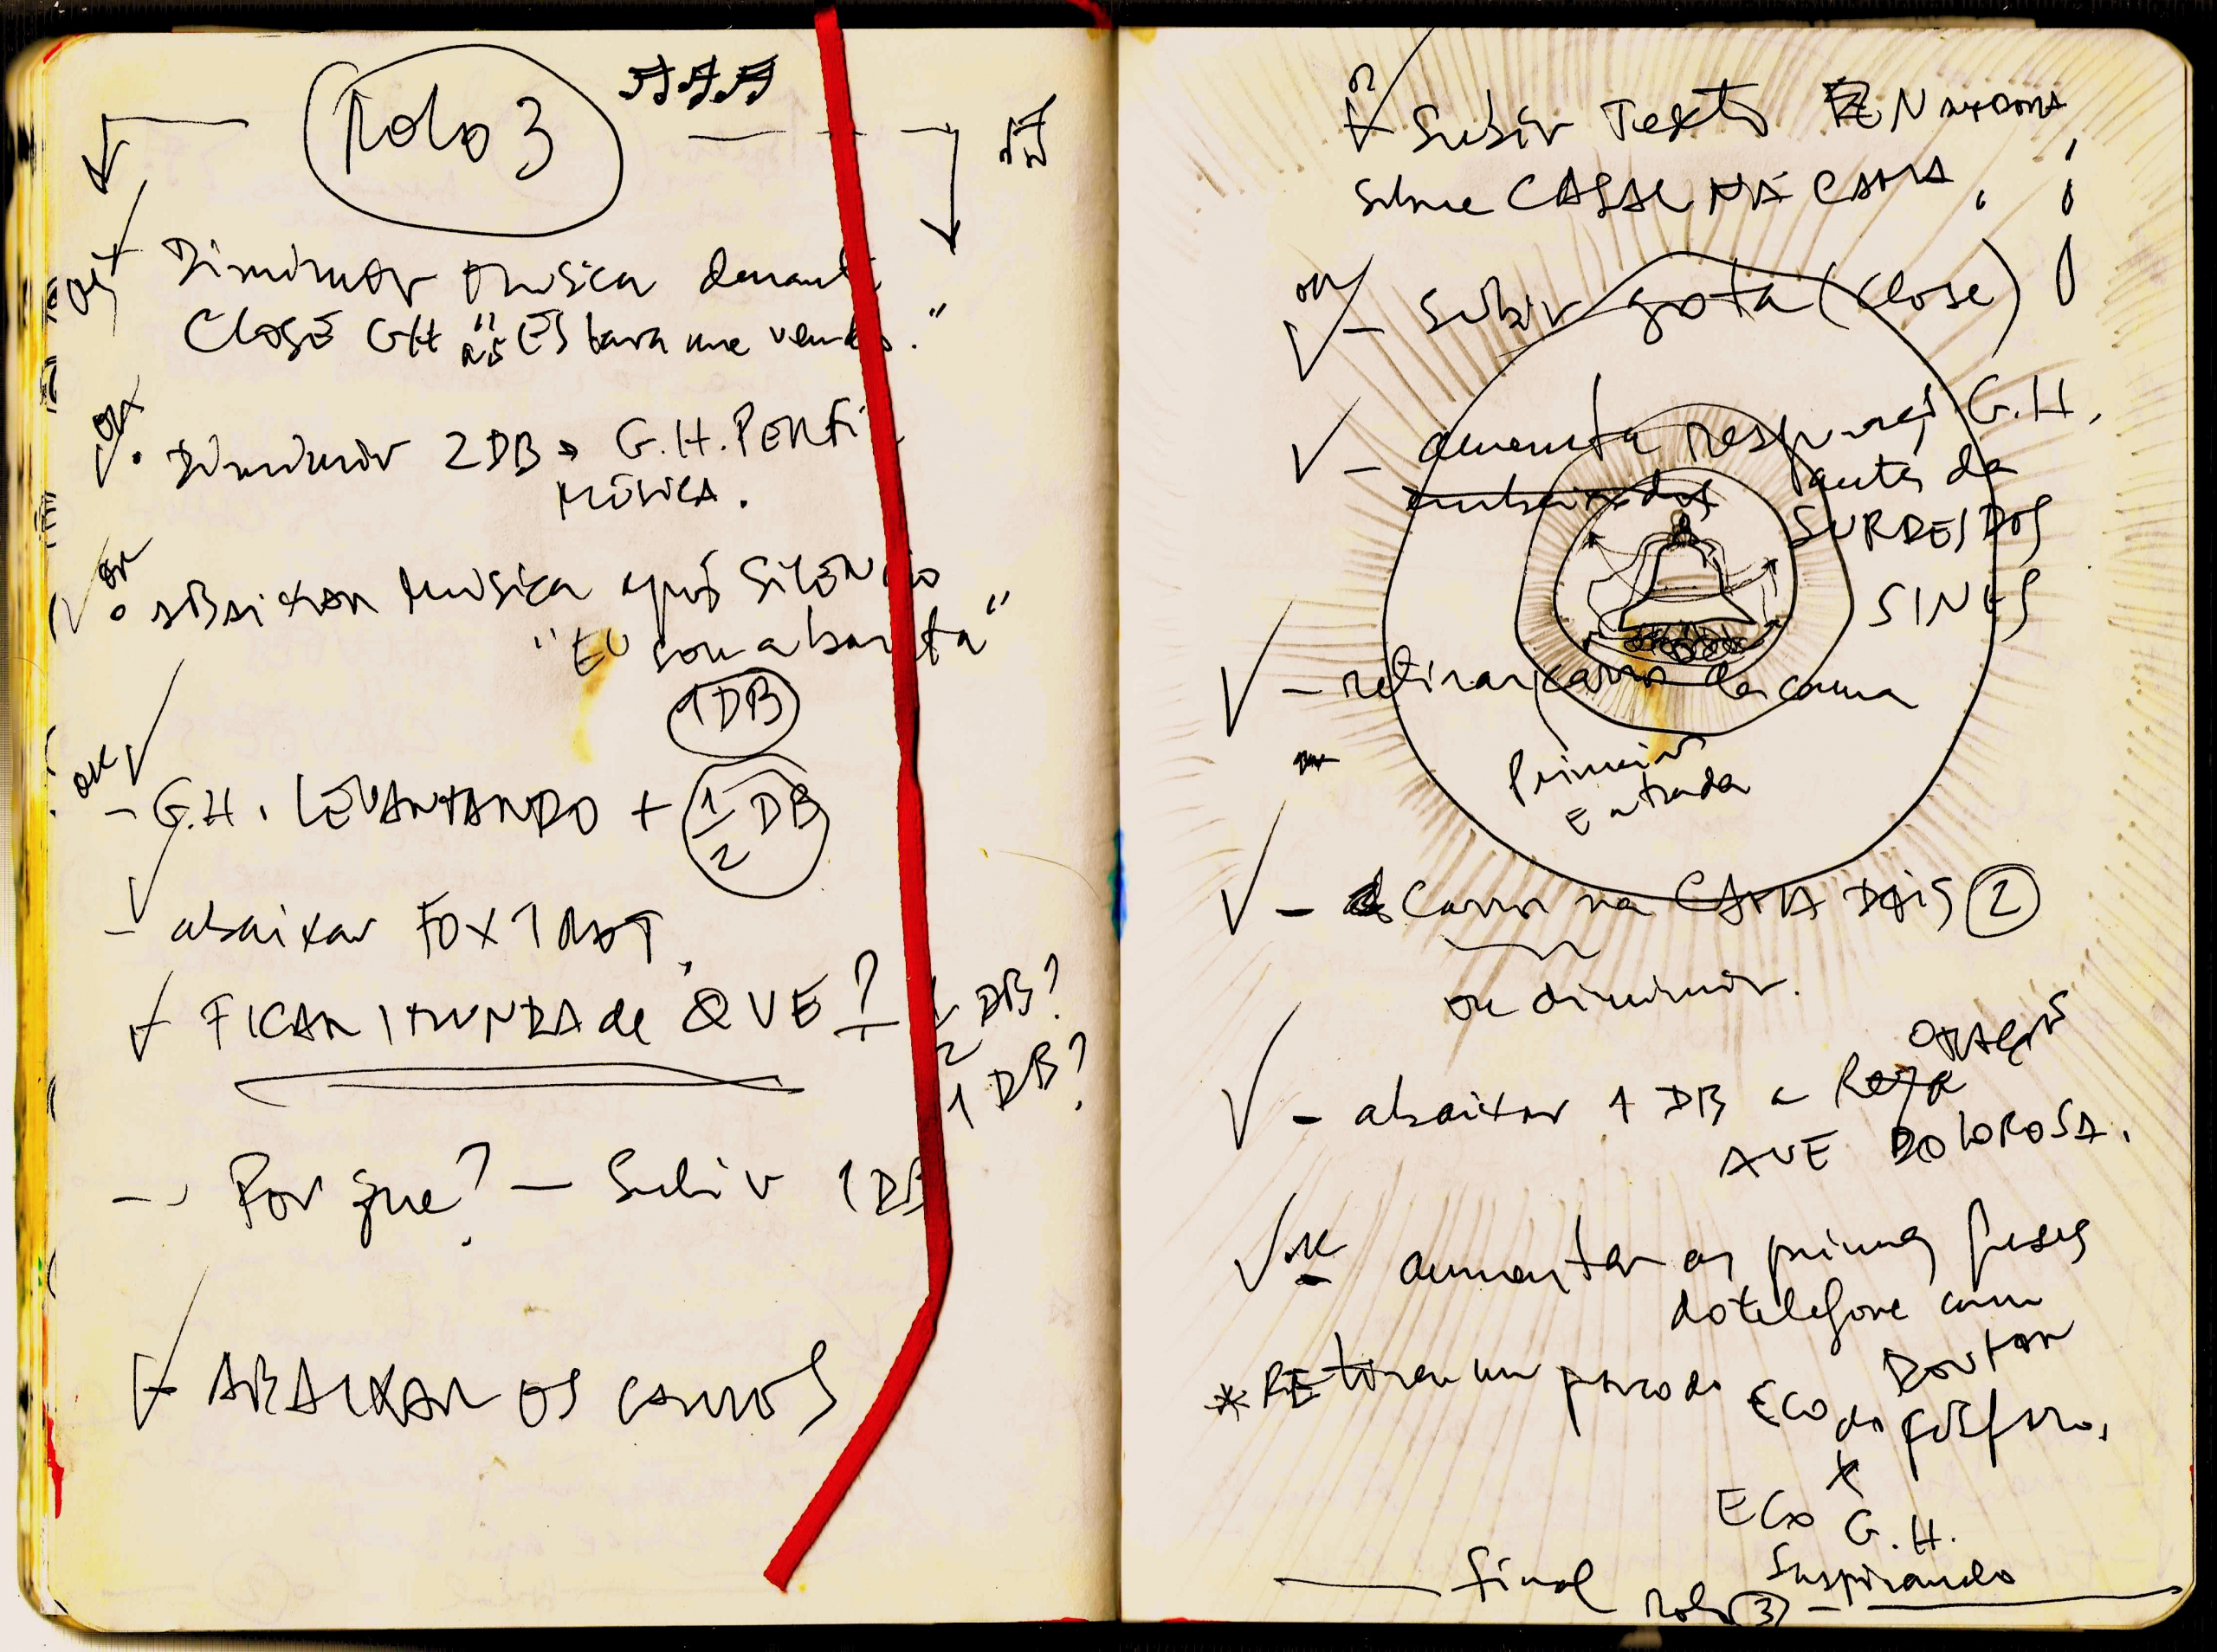 Rolo 3
ok
Diminuir música durante
CLOSE GH "Estava me vendo."
ok
Diminuir 2DB G.H. PERFIL
MÚSICA.
ok
ABAIXAR MÚSICA após SILÊNCIO
"EU sou a barata"
1DB
ok
- G.H. LEVANTANDO + 1/2 DB
- abaixar FOXTROT.
FICAR IMUNDA de QUE? 1/2 DB?
1 DB?
- Por que? - Subir 1DB
- ABAIXAR OS CARROS
Subir Texto
sobre CASAL NA CAMA
ok
- Subir gota (close)
- aumenta respiração G.H.
antes da
SURDEZ DOS
SINOS
- retirar carro da cama
Primeira
Entrada
- Carro na CAMA DOIS 2
ou diminuir.
- abaixar 1 DB a Reza
AVE DOLOROSA.
ok
- aumentar as primeiras frases
do telefone com
Doutor
* REtirar um pouco do Eco do fósforo.
+
Eco G.H.
Suspirando
final rolo 3